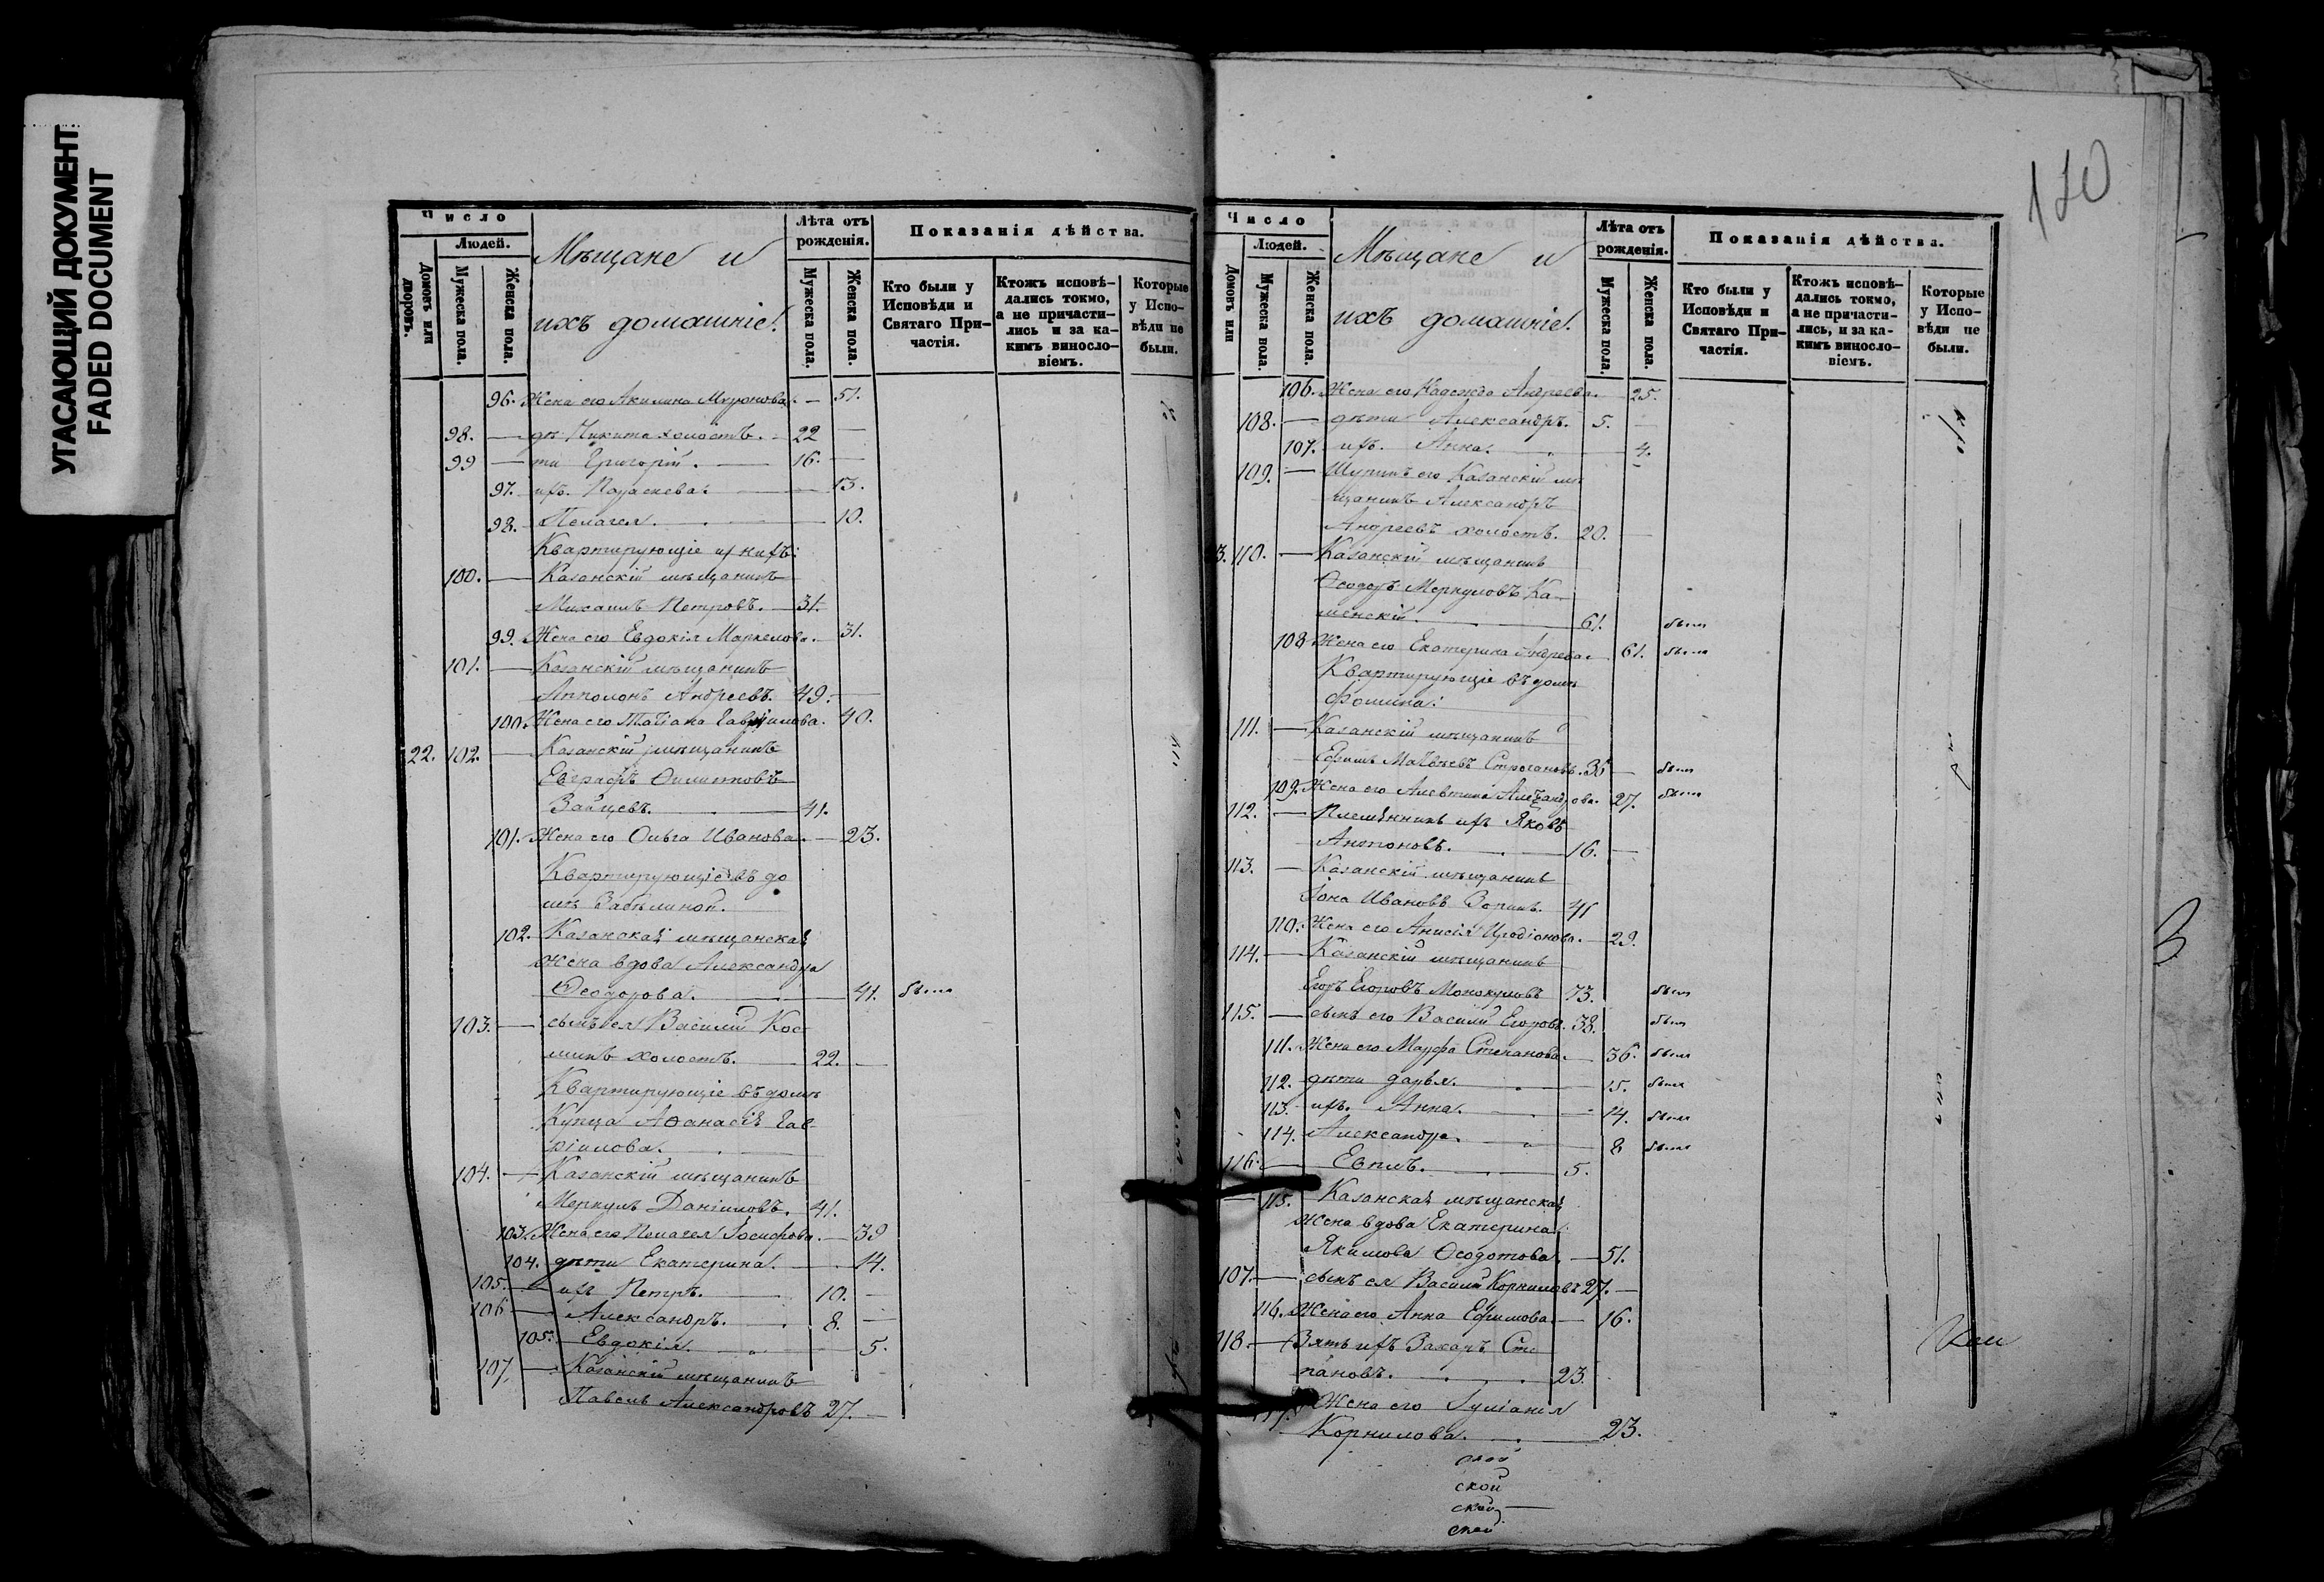 УГАСАЮЩИЙ ДОКУМЕНТ
FADED DOCUMENT
Число
Людей.
Домовъ или дворовъ.
Мужеска пола.
Женска пола.
Мѣщане и
ихъ домашніе.
Лѣта отъ рожденія.
Мужеска пола.
Женска пола.
Показанія дѣйства.
Кто были у Исповѣди и Святаго Причастія.
Ктожъ исповѣдались токмо, а не причастились и за какимъ винословіемъ.
Которые у Исповѣди не были.
96. Жена его Акилина Миронова. — 51.
98. — дѣ Никита холостъ. — 22 —
99 — ти Григорій. — 16. —
97. ихъ. Параскева. — 13.
98. Пелагея. — 10.
Квартирующіе у нихъ:
100. — Казанскій мѣщанинъ
Михаилъ Петровъ. — 31.
99. Жена его Евдокія Маркелова. — 31.
101. — Казанскій мѣщанинъ
Апполонъ Андреевъ. 49. —
100. Жена его Татіана Гавріилова. 40.
22. 102. — Казанскій мѣщанинъ
Евграфъ
Зайцевъ. — 41.
101. Жена его Ольга Иванова. — 23.
Квартирующіе въ до
мѣ Забѣлиной.
102. Казанская мѣщанская
жена вдова Александра
Ѳеодорова. — 41. была
103. — сынъ ея Василій Кос
минъ холостъ. — 22. —
Квартирующіе въ домѣ
Купца Аѳанасія Гав
ріилова.
104. — Казанскій мѣщанинъ
Меркулъ Даніиловъ. 41.
103. Жена его Пелагея Іосифова. — 39
104. дѣти Екатерина. — 14.
105. — ихъ Петръ. — 10. —
106 — Александръ. 8. —
105. Евдокія. — 5.
107. — Казанскій мѣщанинъ
Павелъ Александровъ 27. —
110
Число
Людей.
Домовъ или
Мужеска пола.
Женска пола.
Мѣщане и
ихъ домашніе.
Лѣта отъ рожденія.
Мужеска пола.
Женска пола.
Показанія дѣйства.
Кто были у Исповѣди и Святаго Причастія.
Ктожъ исповѣдались токмо, а не причастились, и за какимъ винословіемъ.
Которые у Исповѣди не были.
106. Жена его Надежда Андреева. — 25.
108. — дѣти Александръ. 5. —
107. ихъ. Анна. — 4.
109. — Шуринъ его Казанскій мѣ
щанинъ Александръ
Андреевъ холостъ. 20. —
3. 110. — Казанскій мѣщанинъ
Ѳеодоръ Меркуловъ Ка-
менскій. — 61. былъ
108 Жена его Екатерина Андреева 61. была
Квартирующіе въ домѣ
Фомина:
111. — Казанскій мѣщанинъ
Ефимъ Матвѣевъ Строгановъ. 36 — былъ
109. Жена его Алевтина Александрова. 27. была
112. — Племянникъ ихъ Яковъ
Антоновъ. — 16. —
113. — Казанскій мѣщанинъ
Іона Ивановъ Зоринъ. 41
110. Жена его Анисія Иродіонова. — 29.
114. — Казанскій мѣщанинъ
Егоръ Егоровъ Монокуловъ 73. былъ
115. — сынъ его Василій Егоровъ. 38. былъ
111. Жена его Марфа Степанова. — 36. была
112. дѣти Дарья. — 15. была
113. ихъ. Анна. — 14. была
114. Александра. — 8 была
116. — Евплъ. — 5.
— 115. Казанская мѣщанская
жена вдова Екатерина
Якимова Ѳеодотова. — 51.
107. — сынъ ея Василій Корниловъ 27. —
116. Жена его Анна Ефимова. — 16.
118 — Зять ихъ Захаръ Сте
пановъ. 23.
Жена его Іуліанія
Корнилова. — 23.
ской
ской
ской